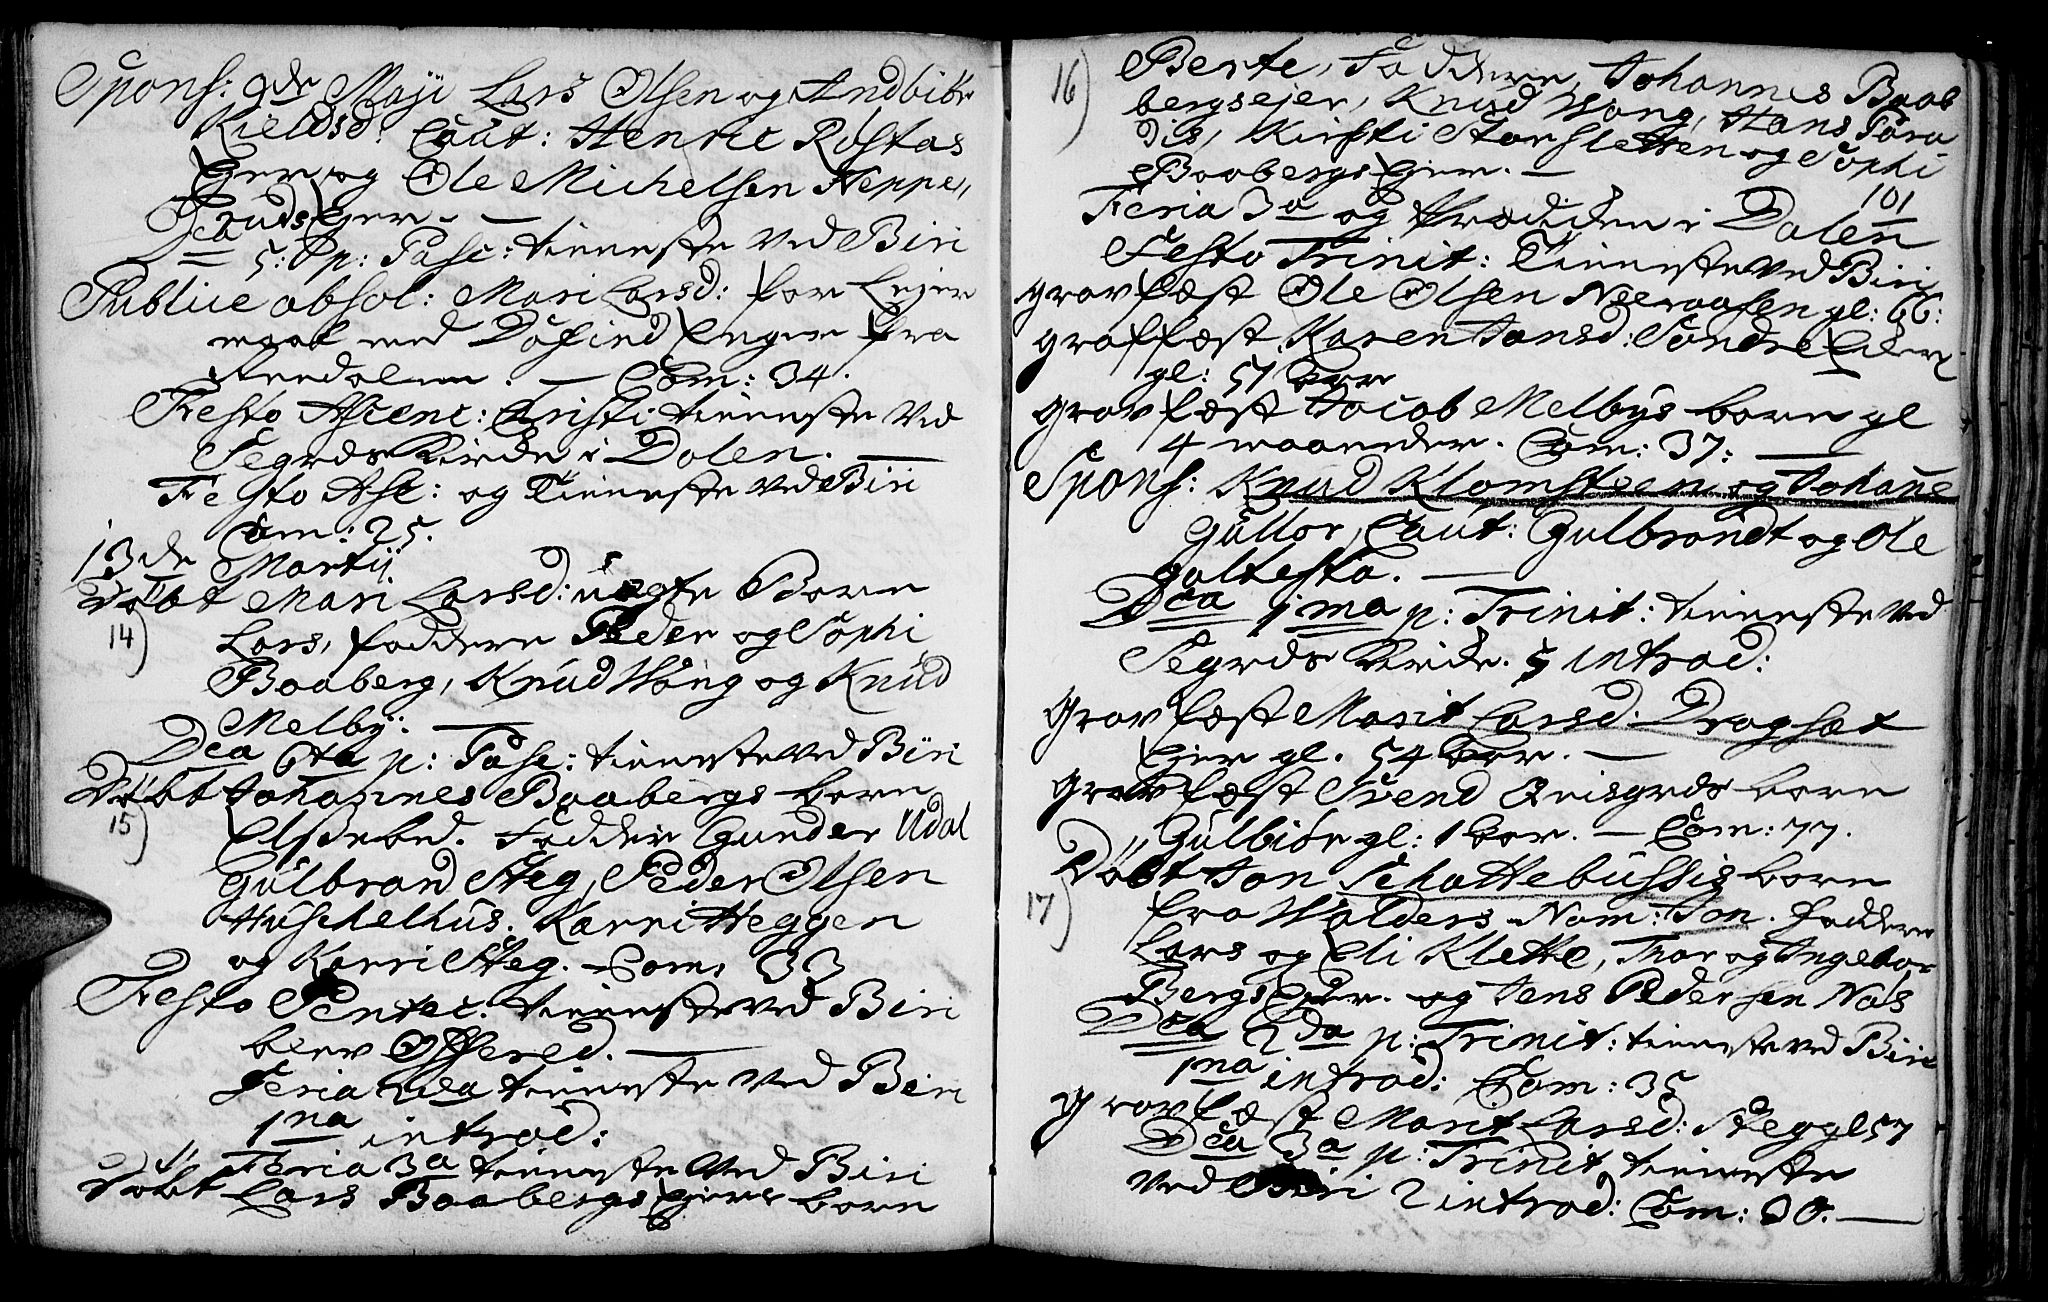 Spons: 9de Maji Lars Olsen og Andbiör
Kieldsd: Caut: Henric Rustas
Ejer og Ole Michelsen Heppe,,
ruds Ejer. —
Dca 5: p: Pasc: tienneste Ved Biri
Publice absol: Mari Larsd: for Lejer
maal med Enger fra
. — Com: 34.
Festo Ascenc: Cristi tienneste Ved
Segrds Kirche i Dalen. —
Festo Asc: og Tienneste Ved Biri
Com: 25.
13de Martij
Döbt Mari Larsd: uægte Barn
14)
Lars, faddere Peder og Sophi
Baaberg, Knud Wang og Knud
Melby. —
Dca 6ta p: Pasc: tienneste Ved Biri
Döbt Johannes Baabergs barn
15)
Elsebed. Fadder Gunder Udal
Gulbrand Steg, Peder Olsen
Huschelhus. Karri Heggen
og Karri Steg. Com: 33
Festo Pentec. tienneste Ved Biri
blev Offered. —
Feria 2da tienneste Ved Biri
1ma introd:
Feria 3a tienneste Ved Biri
Döbt Lars Baabergs Ejers barn
16)
Berte, Faddere, Johannes Baab
bergsejer, Knud Wang, Hans Para
dis, Kirsti Storsletten og Sophi
Baabergs Ejer. —
101
Feria 3a og i Dalen
Festo Trinit: Tienneste Ved Biri
gravfæst Ole Olsen Neeraasen gl: 66:
graffæst Karen Jansd: Söndre
gl: 51 aar
gravfæst Jacob Melbys barn gl
4 maaneder. Com: 37: —
Spons: Knud Klomsteen og Johane
Gullor, Caut: Gulbrandt og Ole
galtesta. —
Dca 1ma p: Trinit: tienneste Ved
Segrds Kirche. 5 introd:
gravfæst Marit Larsd: Dragsæt
Ejer gl. 54 aar. —
gravfæst Svend Qvisgrds barn
Gulbiör gl: 1 aar. — Com: 77.
Döbt Jon Schattebussis barn
17)
fra Walders Nom: Jon. faddere
Lars og Eli Klette, Thor og Ingebor
Bergs Ejer. og Jens Pedersen Næs
Dca 2da p: Trinit: tienneste Ved Biri
1ma introd: Com: 35
gravfæst Marit Larsd: Steg gl 57
Dca 3a p: Trinit: tienneste
Ved Biri 2 introd: Com: 30. —